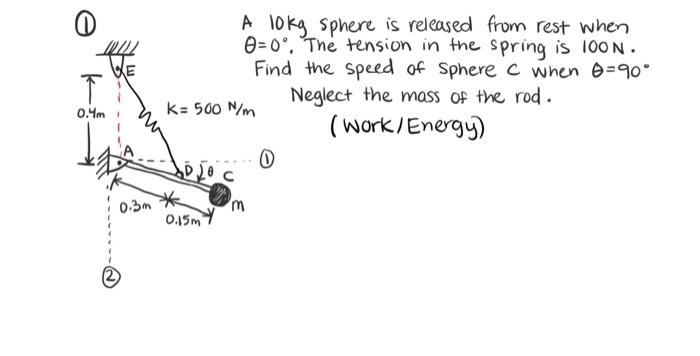 ①
A 10kg sphere is released from rest when
θ=0°. The tension in the spring is 100N.
Find the speed of sphere C when θ=90°
Neglect the mass of the rod.
(Work/Energy)
E
0.4m
K= 500 N/m
A
①
D
θ
C
m
0.3m
0.15m
②